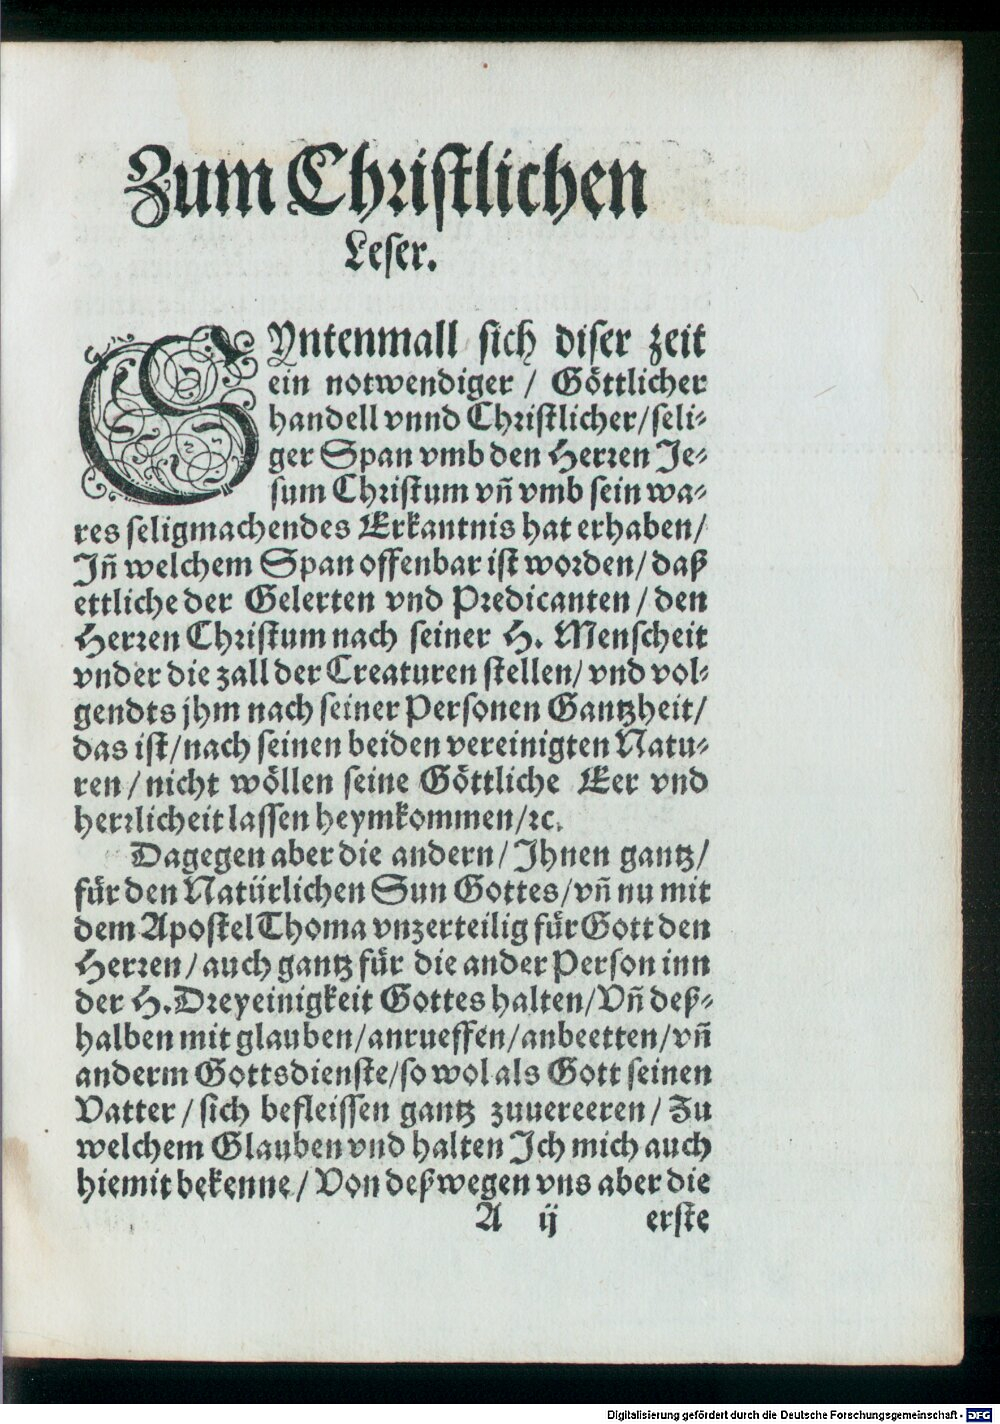 Zum Christlichen
Leser.
SYntenmall sich diser zeit
ein notwendiger / Göttlicher
handell vnnd Christlicher/seli-
ger Span vmb den Herren Je-
sum Christum vñ vmb sein wa-
res seligmachendes Erkantnis hat erhaben/
Jñ welchem Span offenbar ist worden/ daß
ettliche der Gelerten vnd Predicanten / den
Herren Christum nach seiner H. Menscheit
vnder die zall der Creaturen stellen/ vnd vol-
gendts jhm nach seiner Personen Gantzheit/
das ist/nach seinen beiden vereinigten Natu-
ren / nicht wöllen seine Göttliche Eer vnd
herrlicheit lassen heymkommen/ꝛc.
Dagegen aber die andern/ Jhnen gantz/
für den Natürlichen Sun Gottes/vñ nu mit
dem Apostel Thoma vnzerteilig für Gott den
Herren/ auch gantz für die ander Person inn
der H. Dreyeinigkeit Gottes halten/Vñ deß-
halben mit glauben/anrueffen/anbeetten/vñ
anderm Gottsdienste/so wol als Gott seinen
Vatter / sich befleissen gantz zuuereeren/ Zu
welchem Glauben vnd halten Jch mich auch
hiemit bekenne / Von deßwegen vns aber die
A ij erste
Digitalisierung gefördert durch die Deutsche Forschungsgemeinschaft - DFG